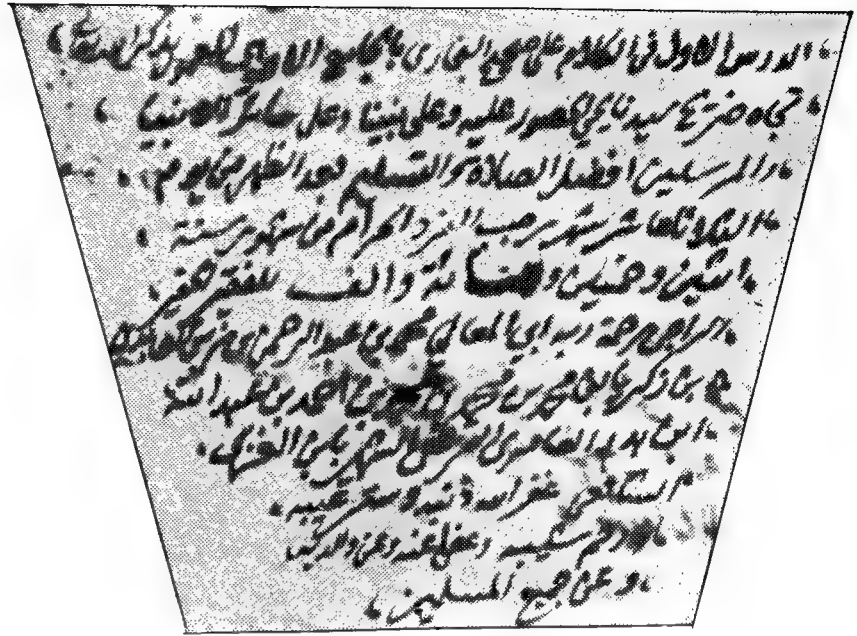 الدرس الاول في الكلام على صحيح البخاري بالجامع الاموي
تجاه ضريح سيدنا يحيى الحصور عليه وعلى نبينا وعلى سائر الانبيا
والمرسلين افضل الصلاة والتسليم بعد الظهر من يوم
الثلاثا عاشر شهر رجب الفرد الحرام من شهور سنة
اثنين وخمسين ومائة والف للفقير الحقير
راجي رحمة ربه ابي المعالي محمد بن عبد الرحمن بن زين العابدين
بن زكريا بن محمد بن محمد بن محمد بن احمد بن عبد الله
ابن العامري الشهير بابن الغزي
الشافعي غفر الله ذنبه وستر عيبه
وعفى عنه وعن والديه
وعن جميع المسلمين